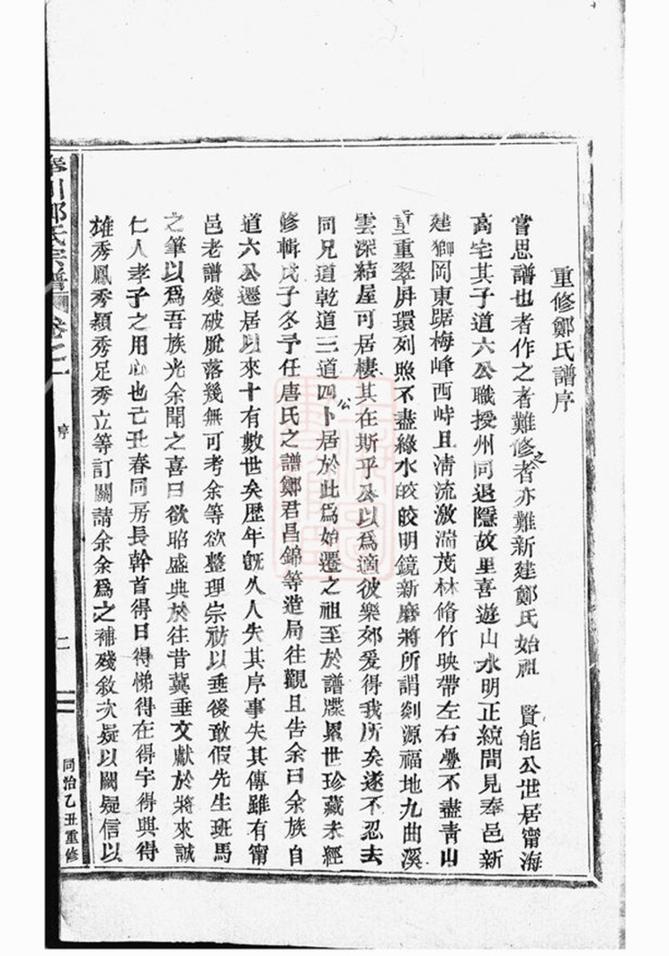 重修鄭氏譜序
嘗思譜也者作之者難修之者亦難新建鄭氏始祖　賢能公世居甯海
高宅其子道六公職授州同退隱故里喜遊山水明正統間見奉邑新
建獅岡東踞梅峰西峙且清流激湍茂林脩竹映帶左右疊不盡青山
重重翠屏環列照不盡綠水皎皎明鏡新磨將所謂剡源福地九曲溪
雲深結屋可居棲其在斯乎公以爲適彼樂郊爰得我所矣遂不忍去
同兄道乾道三道四公卜居於此爲始遷之祖至於譜牒累世珍藏未經
修輯氏子冬予任唐氏之譜鄭君昌錦等造局往觀且告余曰余族自
道六公遷居以來十有數世矣歷年既久人失其序事失其傳雖有甯
邑老譜殘破脫落幾無可考余等欲整理宗祊以垂後敢假先生班馬
之筆以爲吾族光余聞之喜曰欲昭盛典於往昔冀垂文獻於將來誠
仁人孝子之用心也亡丑春同房長幹首得日得悌得在得宇得與得
雄秀鳳秀穎秀足秀立等訂關請余余爲之補殘敘次疑以闕疑信以
奉川鄭氏宗譜　卷之一　序　二　同治乙丑重修